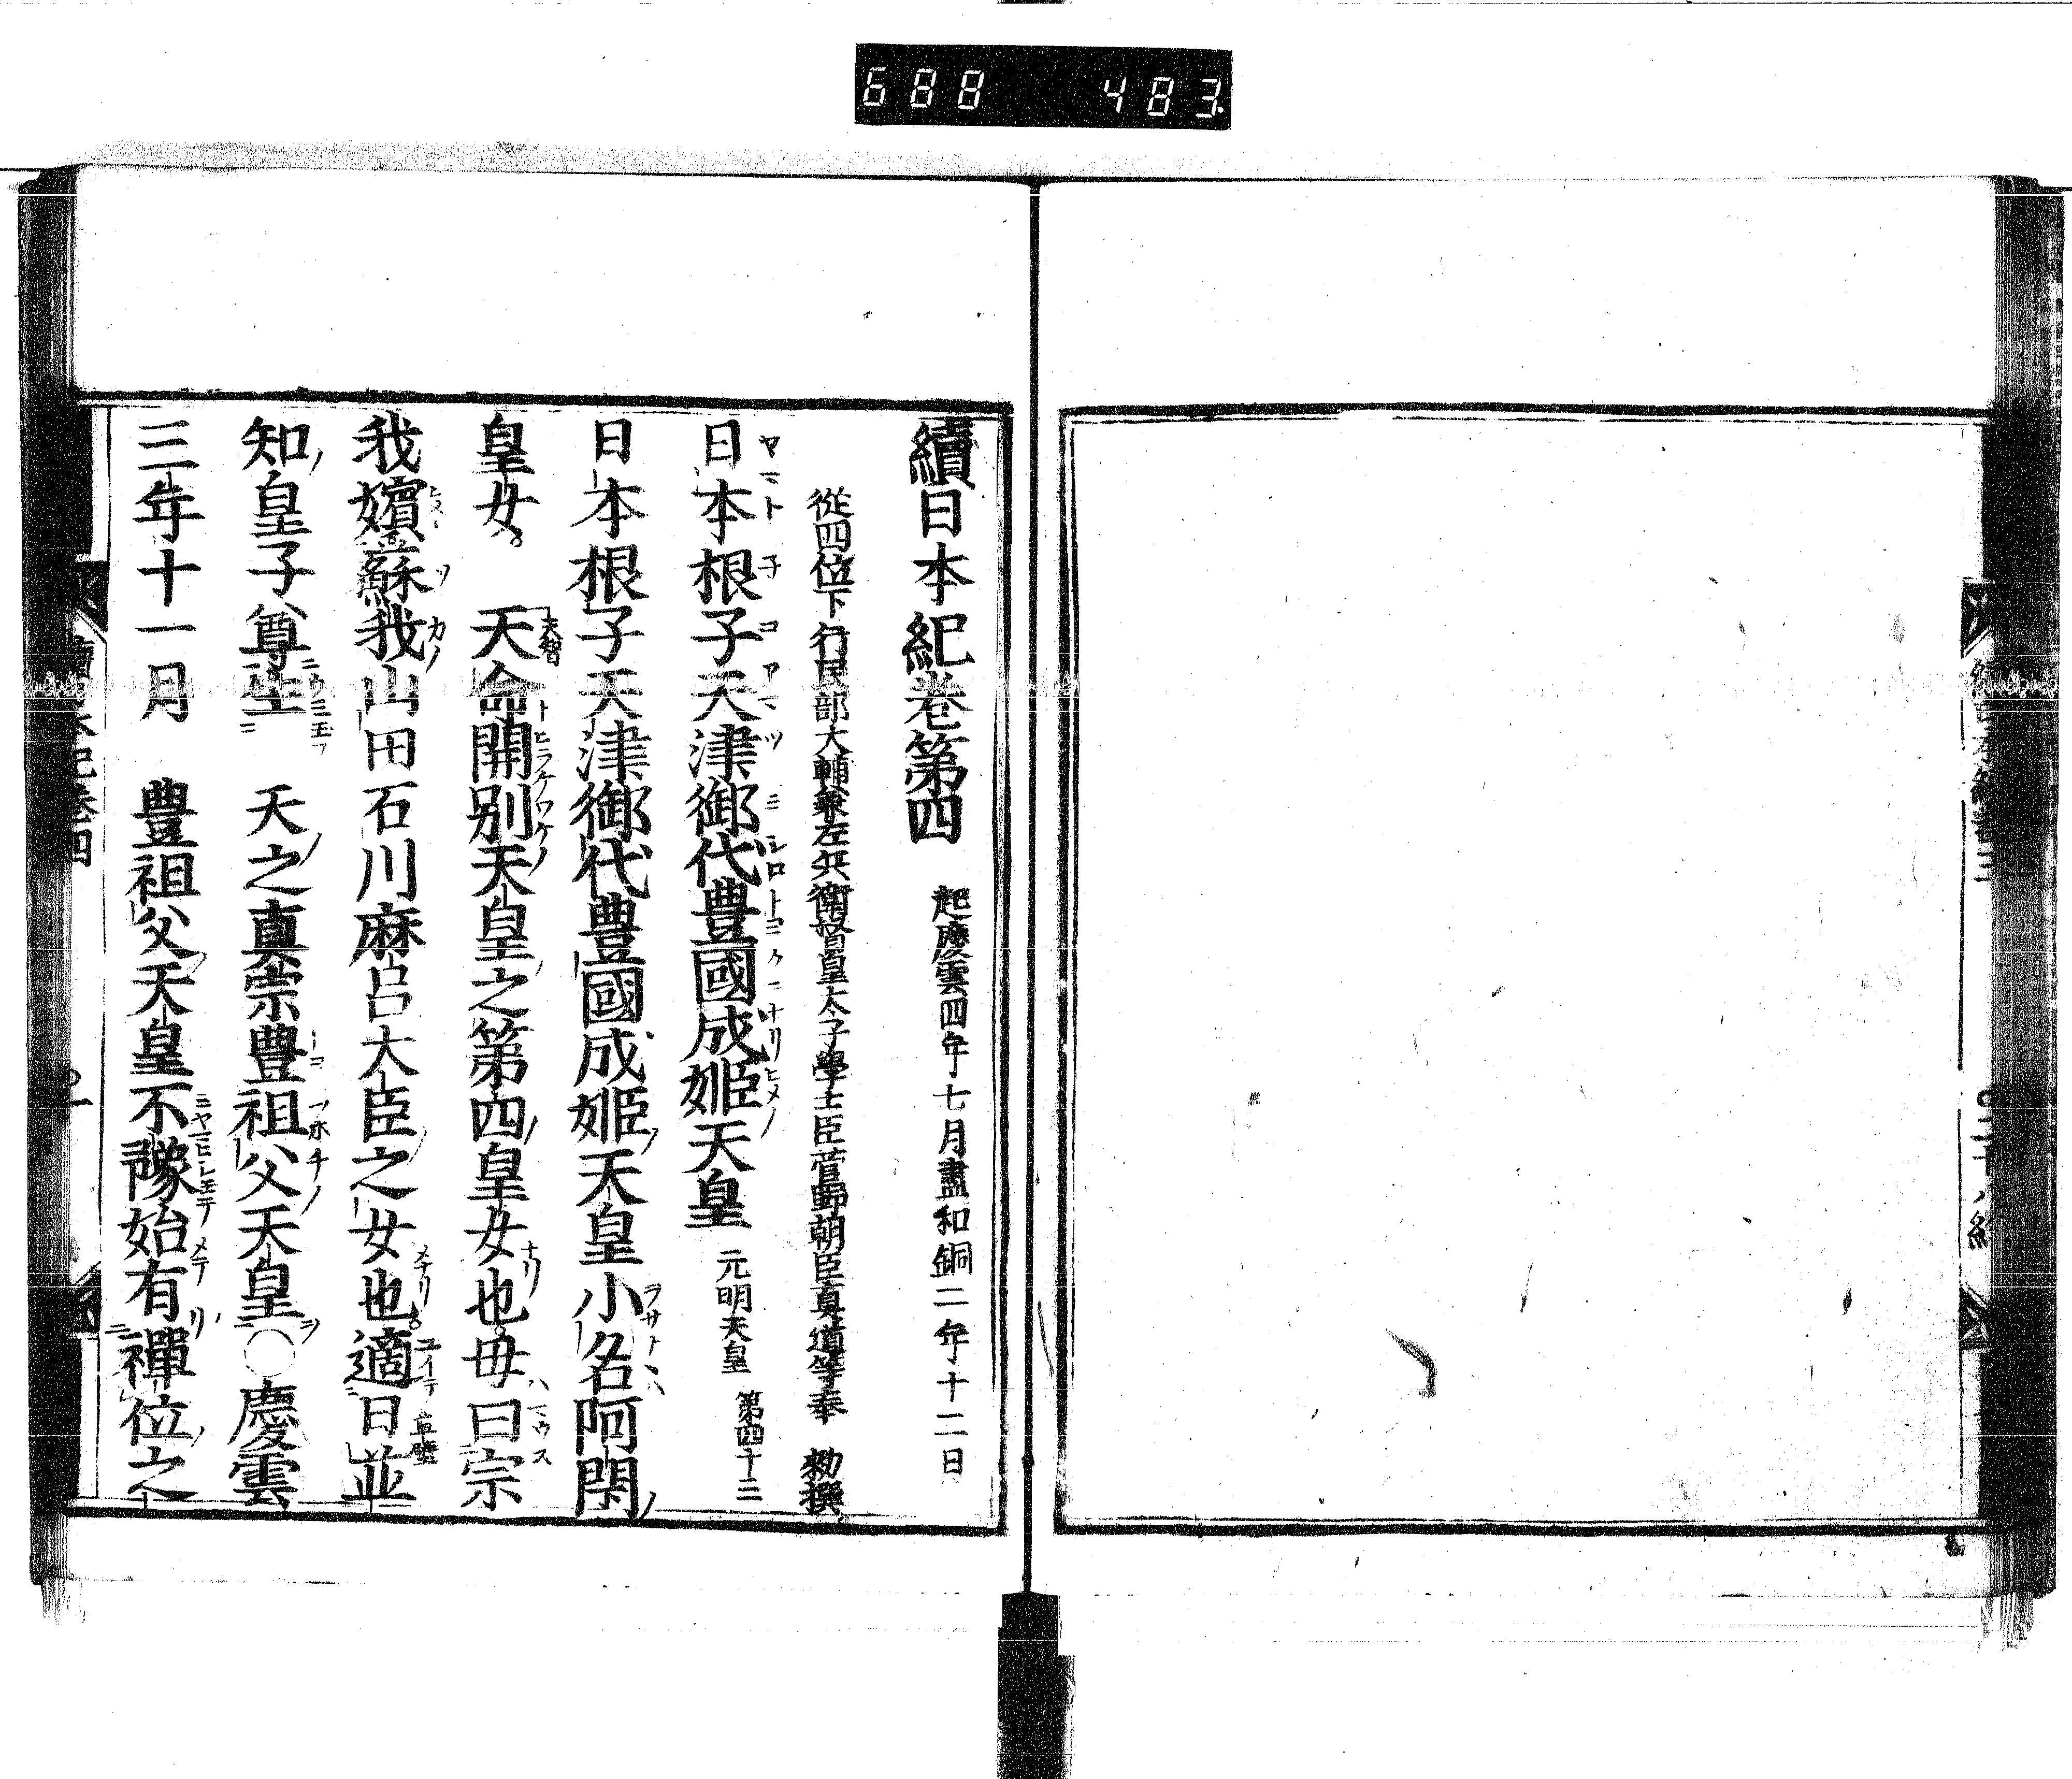 688 483
續日本紀卷第四 起慶雲四年七月盡和銅二年十二日
從四位下行民部大輔兼左兵衛督皇太子學士臣菅野朝臣眞道等奉 勅撰
日本根子天津御代豊國成姬天皇 元明天皇 第四十三
日本根子天津御代豊國成姬天皇小名阿閇
皇女。 天命開別天皇之第四皇女也。母曰宗
我嬪蘇我山田石川麻呂大臣之女也。適日並
知皇子尊生 天之真宗豊祖父天皇○慶雲
三年十一月 豊祖父天皇不豫始有禪位之